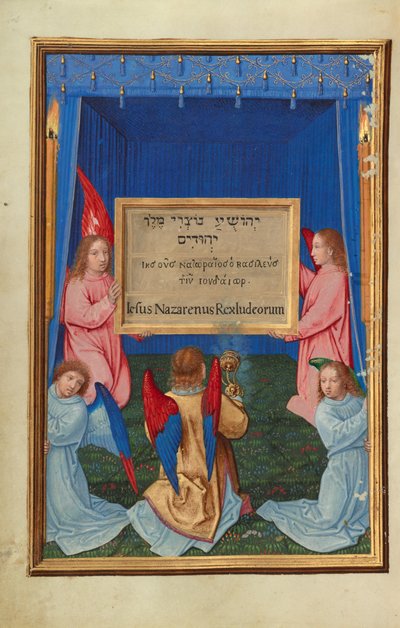 יְהוֹשֻׁעַ נוֹצְרִי מֶלֶךְ
יְהוּדִים
Ιησ ουσ ναζωραῖοσ ὁ βασιλευσ
τῶν ιουδάιων.
Iesus Nazarenus Rex Iudeorum